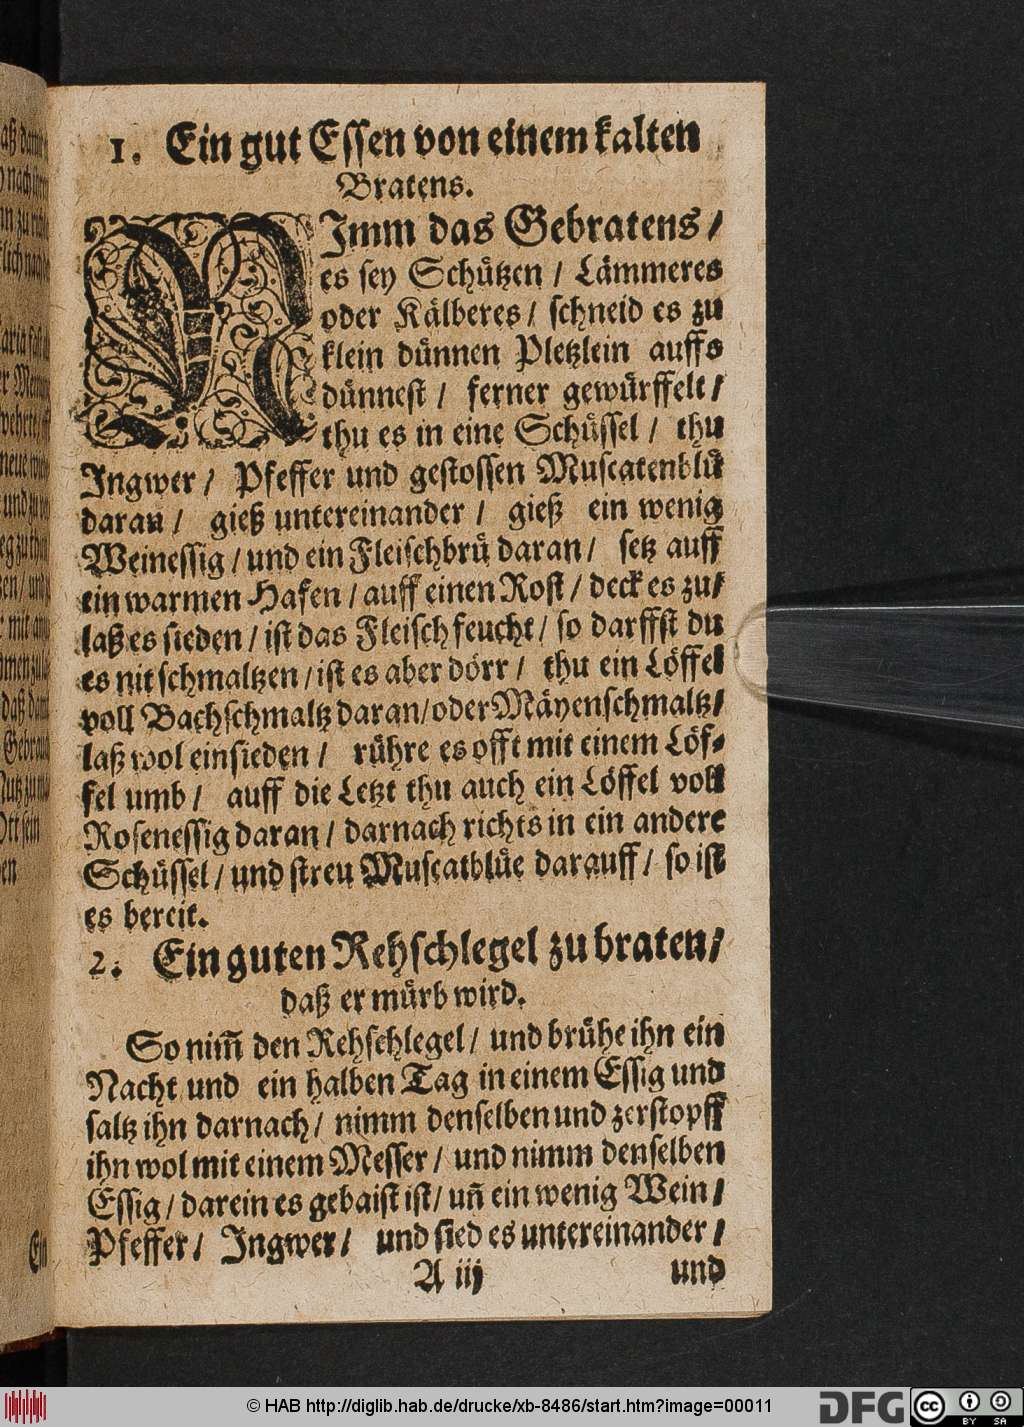 1. Ein gut Essen von einem kalten
Bratens.
NImm das Gebratens /
es sey Schützen / Lämmeres
oder Kälberes / schneid es zu
klein dünnen Pletzlein auffs
dünnest / ferner gewürffelt /
thu es in eine Schüssel / thu
Ingwer / Pfeffer und gestossen Muscatenblü
daran / gieß untereinander / gieß ein wenig
Weinessig / und ein Fleischbrü daran / setz auff
ein warmen Hafen / auff einen Rost / deck es zu /
laß es sieden / ist das Fleisch feucht / so darffst du
es nit schmaltzen / ist es aber dörr / thu ein Löffel
voll Bachschmaltz daran / oder Mäyenschmaltz /
laß wol einsieden / rühre es offt mit einem Löf-
fel umb / auff die Letzt thu auch ein Löffel voll
Rosenessig daran / darnach richts in ein andere
Schüssel / und streu Muscatblüe darauff / so ist
es bereit.
2. Ein guten Rehschlegel zu braten /
daß er mürb wird.
So nim̃ den Rehschlegel / und brühe ihn ein
Nacht und ein halben Tag in einem Essig und
saltz ihn darnach / nimm denselben und zerstopff
ihn wol mit einem Messer / und nimm denselben
Essig / darein es gebaist ist / uñ ein wenig Wein /
Pfeffer / Ingwer / und sied es untereinander /
A iij und
© HAB http://diglib.hab.de/drucke/xb-8486/start.htm?image=00011
DFG
cc BY SA